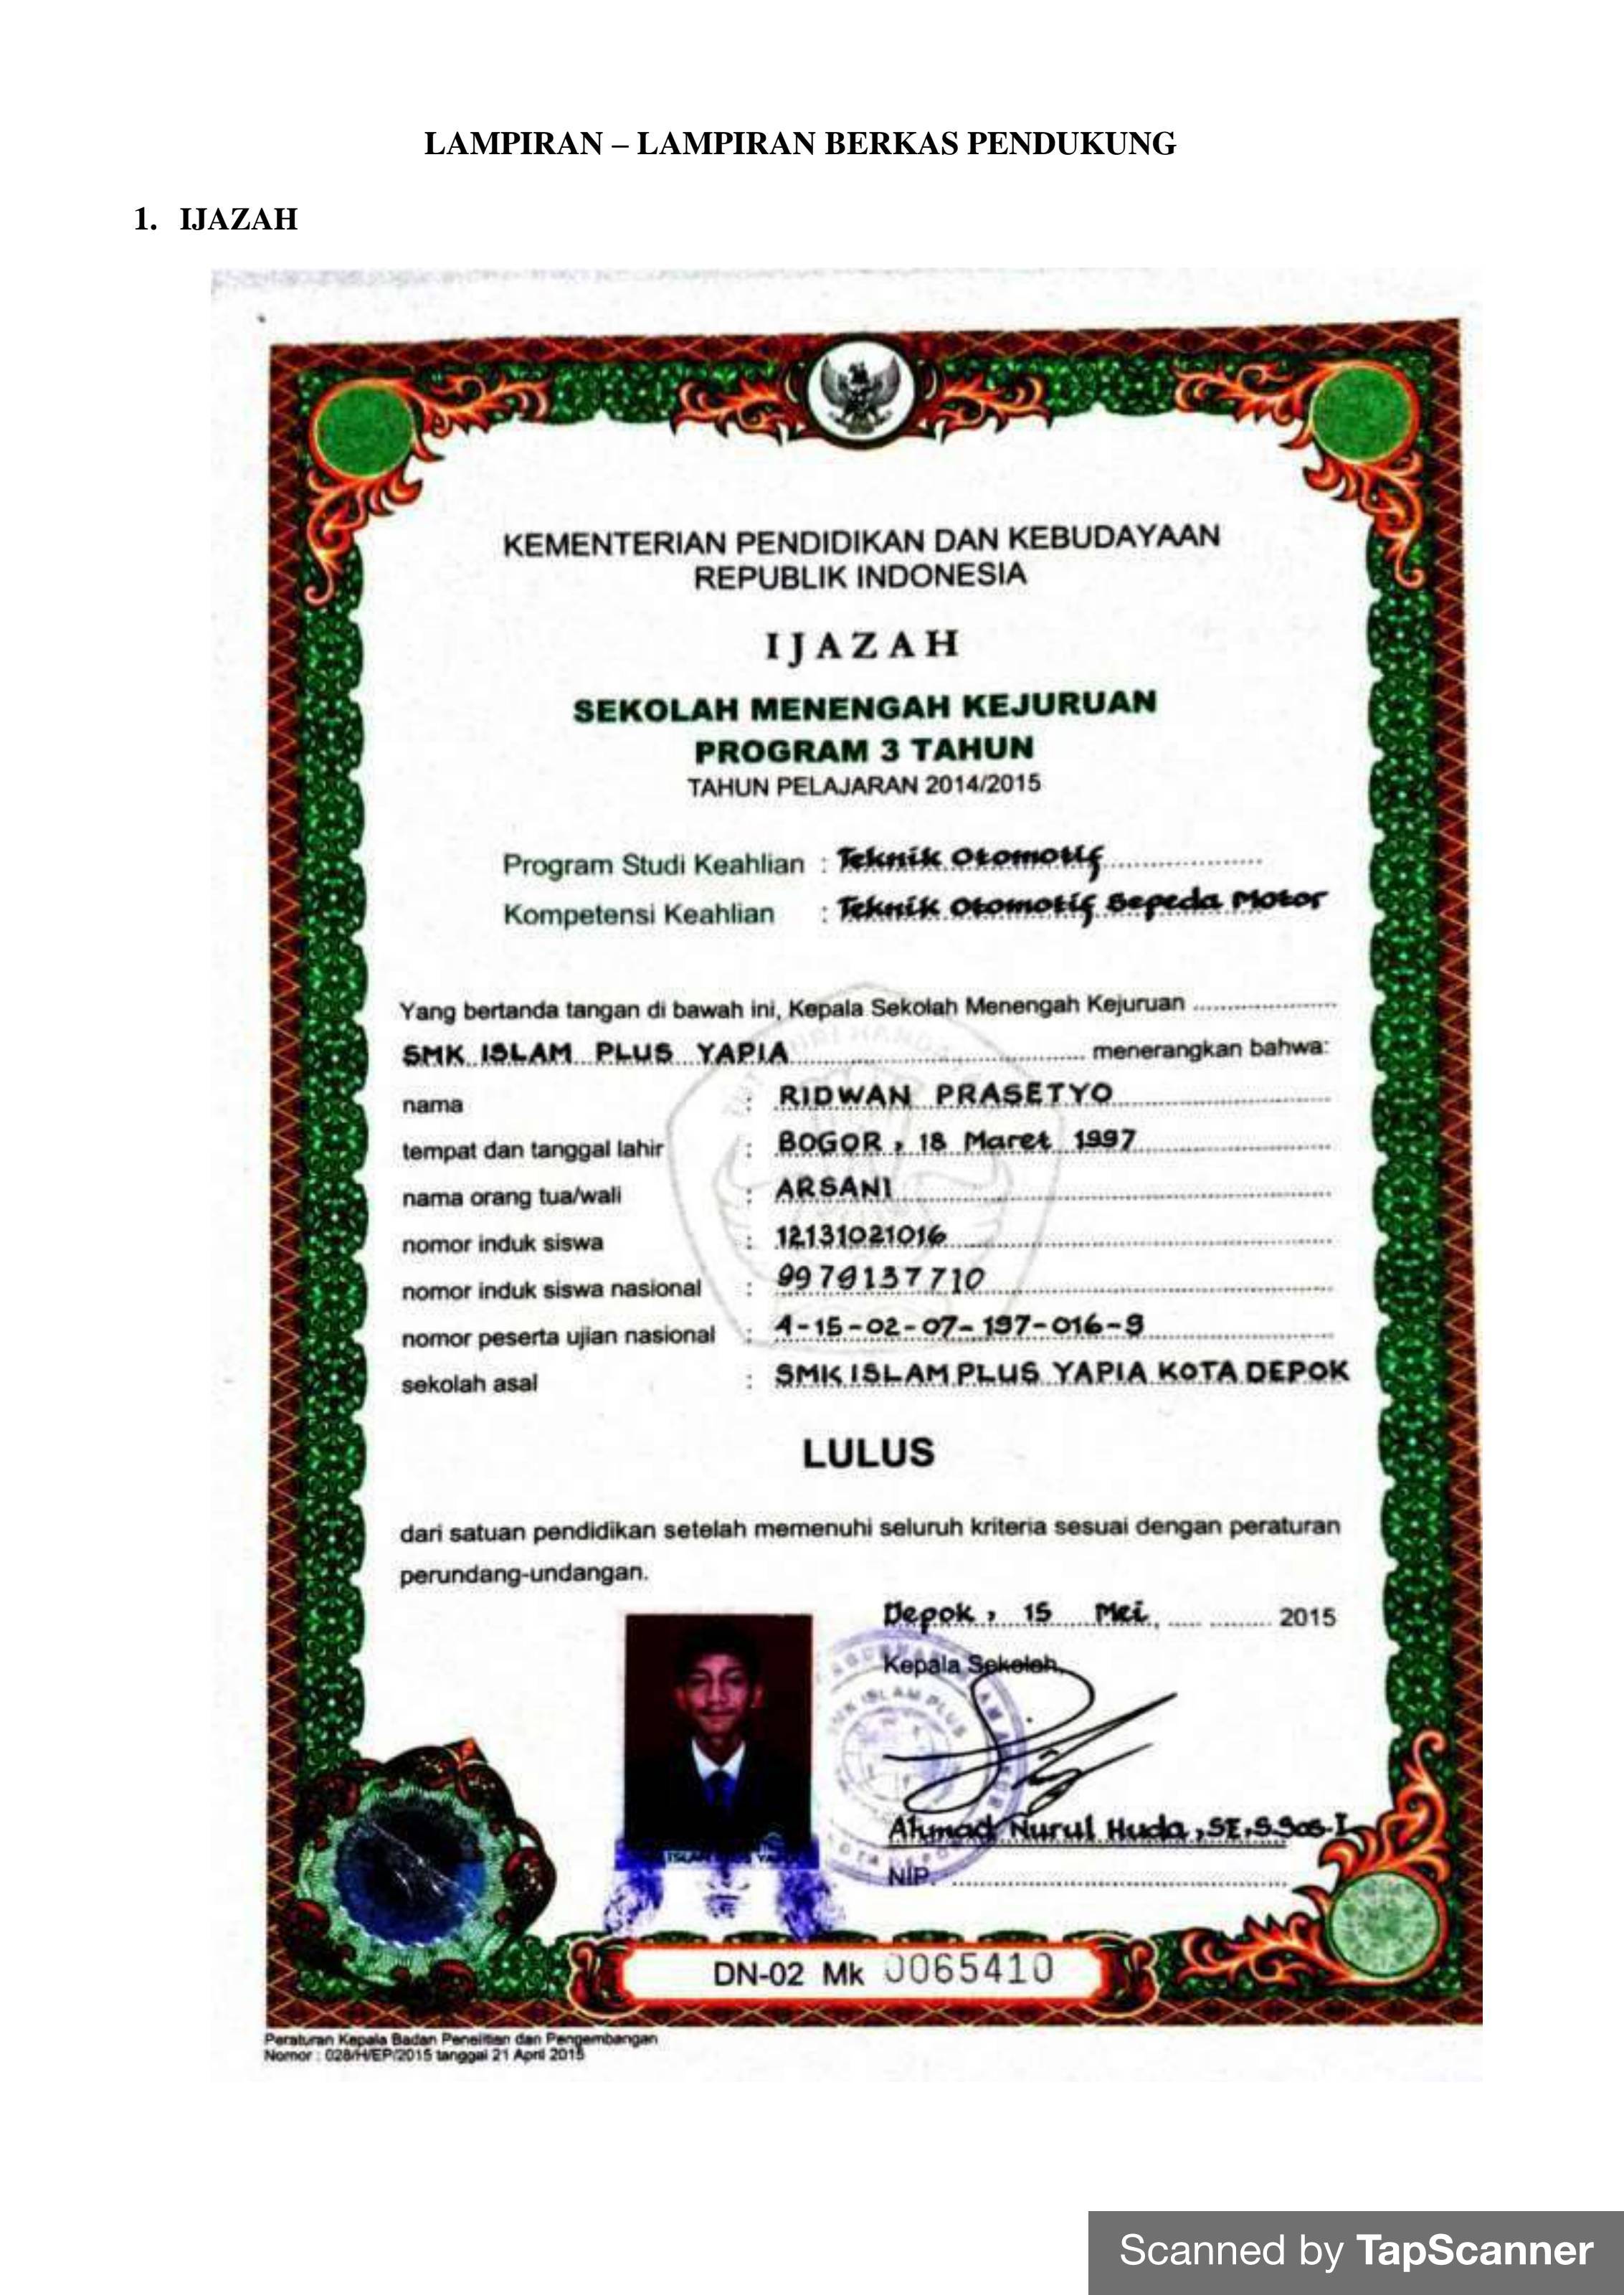 LAMPIRAN – LAMPIRAN BERKAS PENDUKUNG
1. IJAZAH
KEMENTERIAN PENDIDIKAN DAN KEBUDAYAAN
REPUBLIK INDONESIA
IJAZAH
SEKOLAH MENENGAH KEJURUAN
PROGRAM 3 TAHUN
TAHUN PELAJARAN 2014/2015
Program Studi Keahlian : Teknik Otomotif
Kompetensi Keahlian : Teknik Otomotif Sepeda Motor
Yang bertanda tangan di bawah ini, Kepala Sekolah Menengah Kejuruan
SMK ISLAM PLUS YAPIA menerangkan bahwa:
nama : RIDWAN PRASETYO
tempat dan tanggal lahir : BOGOR, 18 Maret 1997
nama orang tua/wali : ARSANI
nomor induk siswa : 12131021016
nomor induk siswa nasional : 9979137710
nomor peserta ujian nasional : 4-15-02-07-197-016-9
sekolah asal : SMK ISLAM PLUS YAPIA KOTA DEPOK
LULUS
dari satuan pendidikan setelah memenuhi seluruh kriteria sesuai dengan peraturan
perundang-undangan.
Depok, 15 Mei, 2015
Kepala Sekolah,
SMK ISLAM PLUS
Ahmad Nurul Huda, SE, S.Sos.I
NIP.
DN-02 Mk 0065410
Peraturan Kepala Badan Penelitian dan Pengembangan
Nomor : 028/H/EP/2015 tanggal 21 April 2015
Scanned by TapScanner